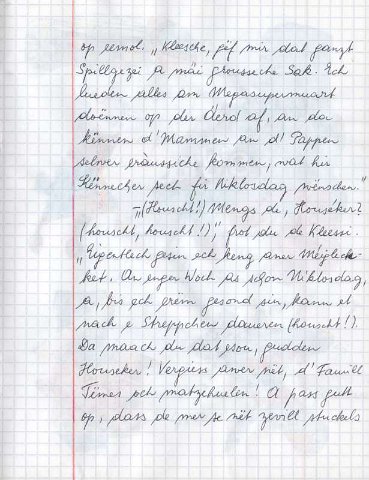 op eemol. „Kleesche, gëf mir dat ganzt
Spillgezei a mäi grousseche Sak. Ech
lueden alles am Megasupermuart
doënnen op der Äerd af, an do
kënnen d'Mammen an d'Pappen
selwer eraussiche kommen, wat hir
Kënnecher sech fir Niklosdag wënschen."
– „(Houscht!) Mengs de, Houséker?
(houscht, houscht!)", frot du de Kleeschen.
„Eigentlech gesin ech keng aner Méiglech-
ket. An enger Woch as schon Niklosdag,
a, bis ech erëm gesond sin, kann et
nach e Streppchen daueren (houscht!).
Da maach du dat esou, gudden
Houseker! Vergiess awer nët, d'Famill
Tëmes och matzehuelen! A pass gutt
op, dass de mer se nët zevill stuckels